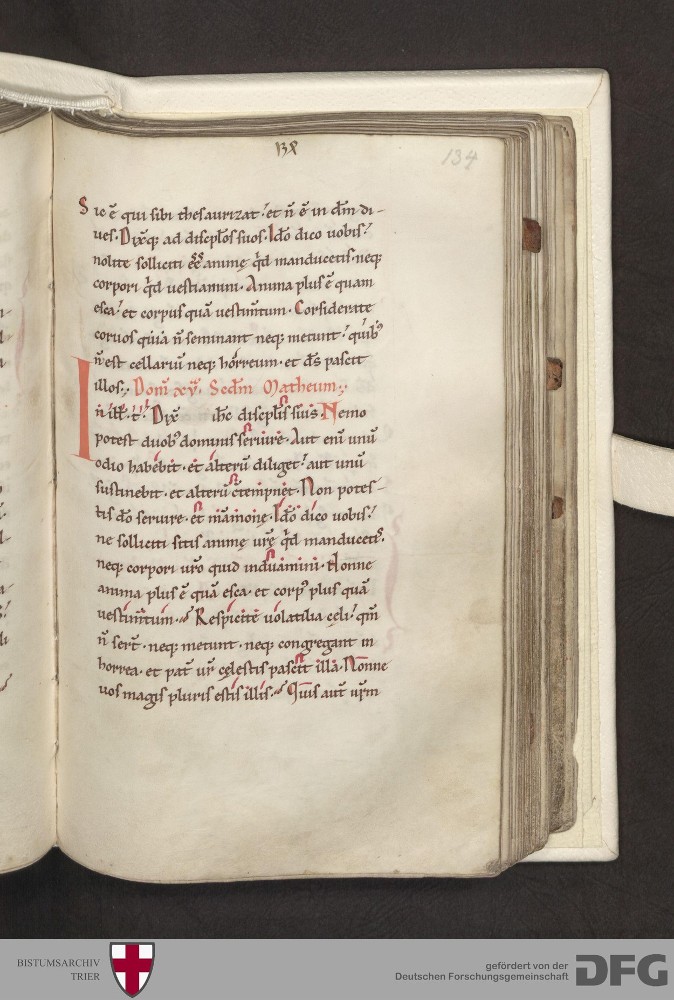 134
134
Sic ē qui sibi thesaurizat. et n̄ ē in dm̄ di-
ues. Dixq; ad discplos suos. Ido dico uobis.
nolite solliciti eē animę qd manducetis. neq;
corpori qd uestiamini. Anima plus ē quam
esca. et corpus quā uestim̄tum. Considerate
coruos quia n̄ seminant neq; metunt. quib;
n̄ est cellariū neq; horreum. et ds pascit
illos. Dom̄ xv. Scdm Matheum.
In ill. t. Dix̄ ihc discplis suis. Nemo
potest duob; dominis seruire. Aut enī unū
odio habebit. et alterū diliget. aut unū
sustinebit. et alterū c̄tempnet. Non potes-
tis do seruire. et mamonę. Ido dico uobis.
ne solliciti sitis animę urę qd manducetis.
neq; corpori uro quid induamini. Nonne
anima plus ē quā esca. et corp; plus quā
uestim̄tum. Respicite uolatilia cęli. qm̄
n̄ ser̄t. neq; metunt. neq; congregant in
horrea. et pat̄ ur̄ cęlestis pascit illa. Nonne
uos magis pluris estis illis. Quis aut̄ urm̄
BISTUMSARCHIV
TRIER
gefördert von der
Deutschen Forschungsgemeinschaft
DFG